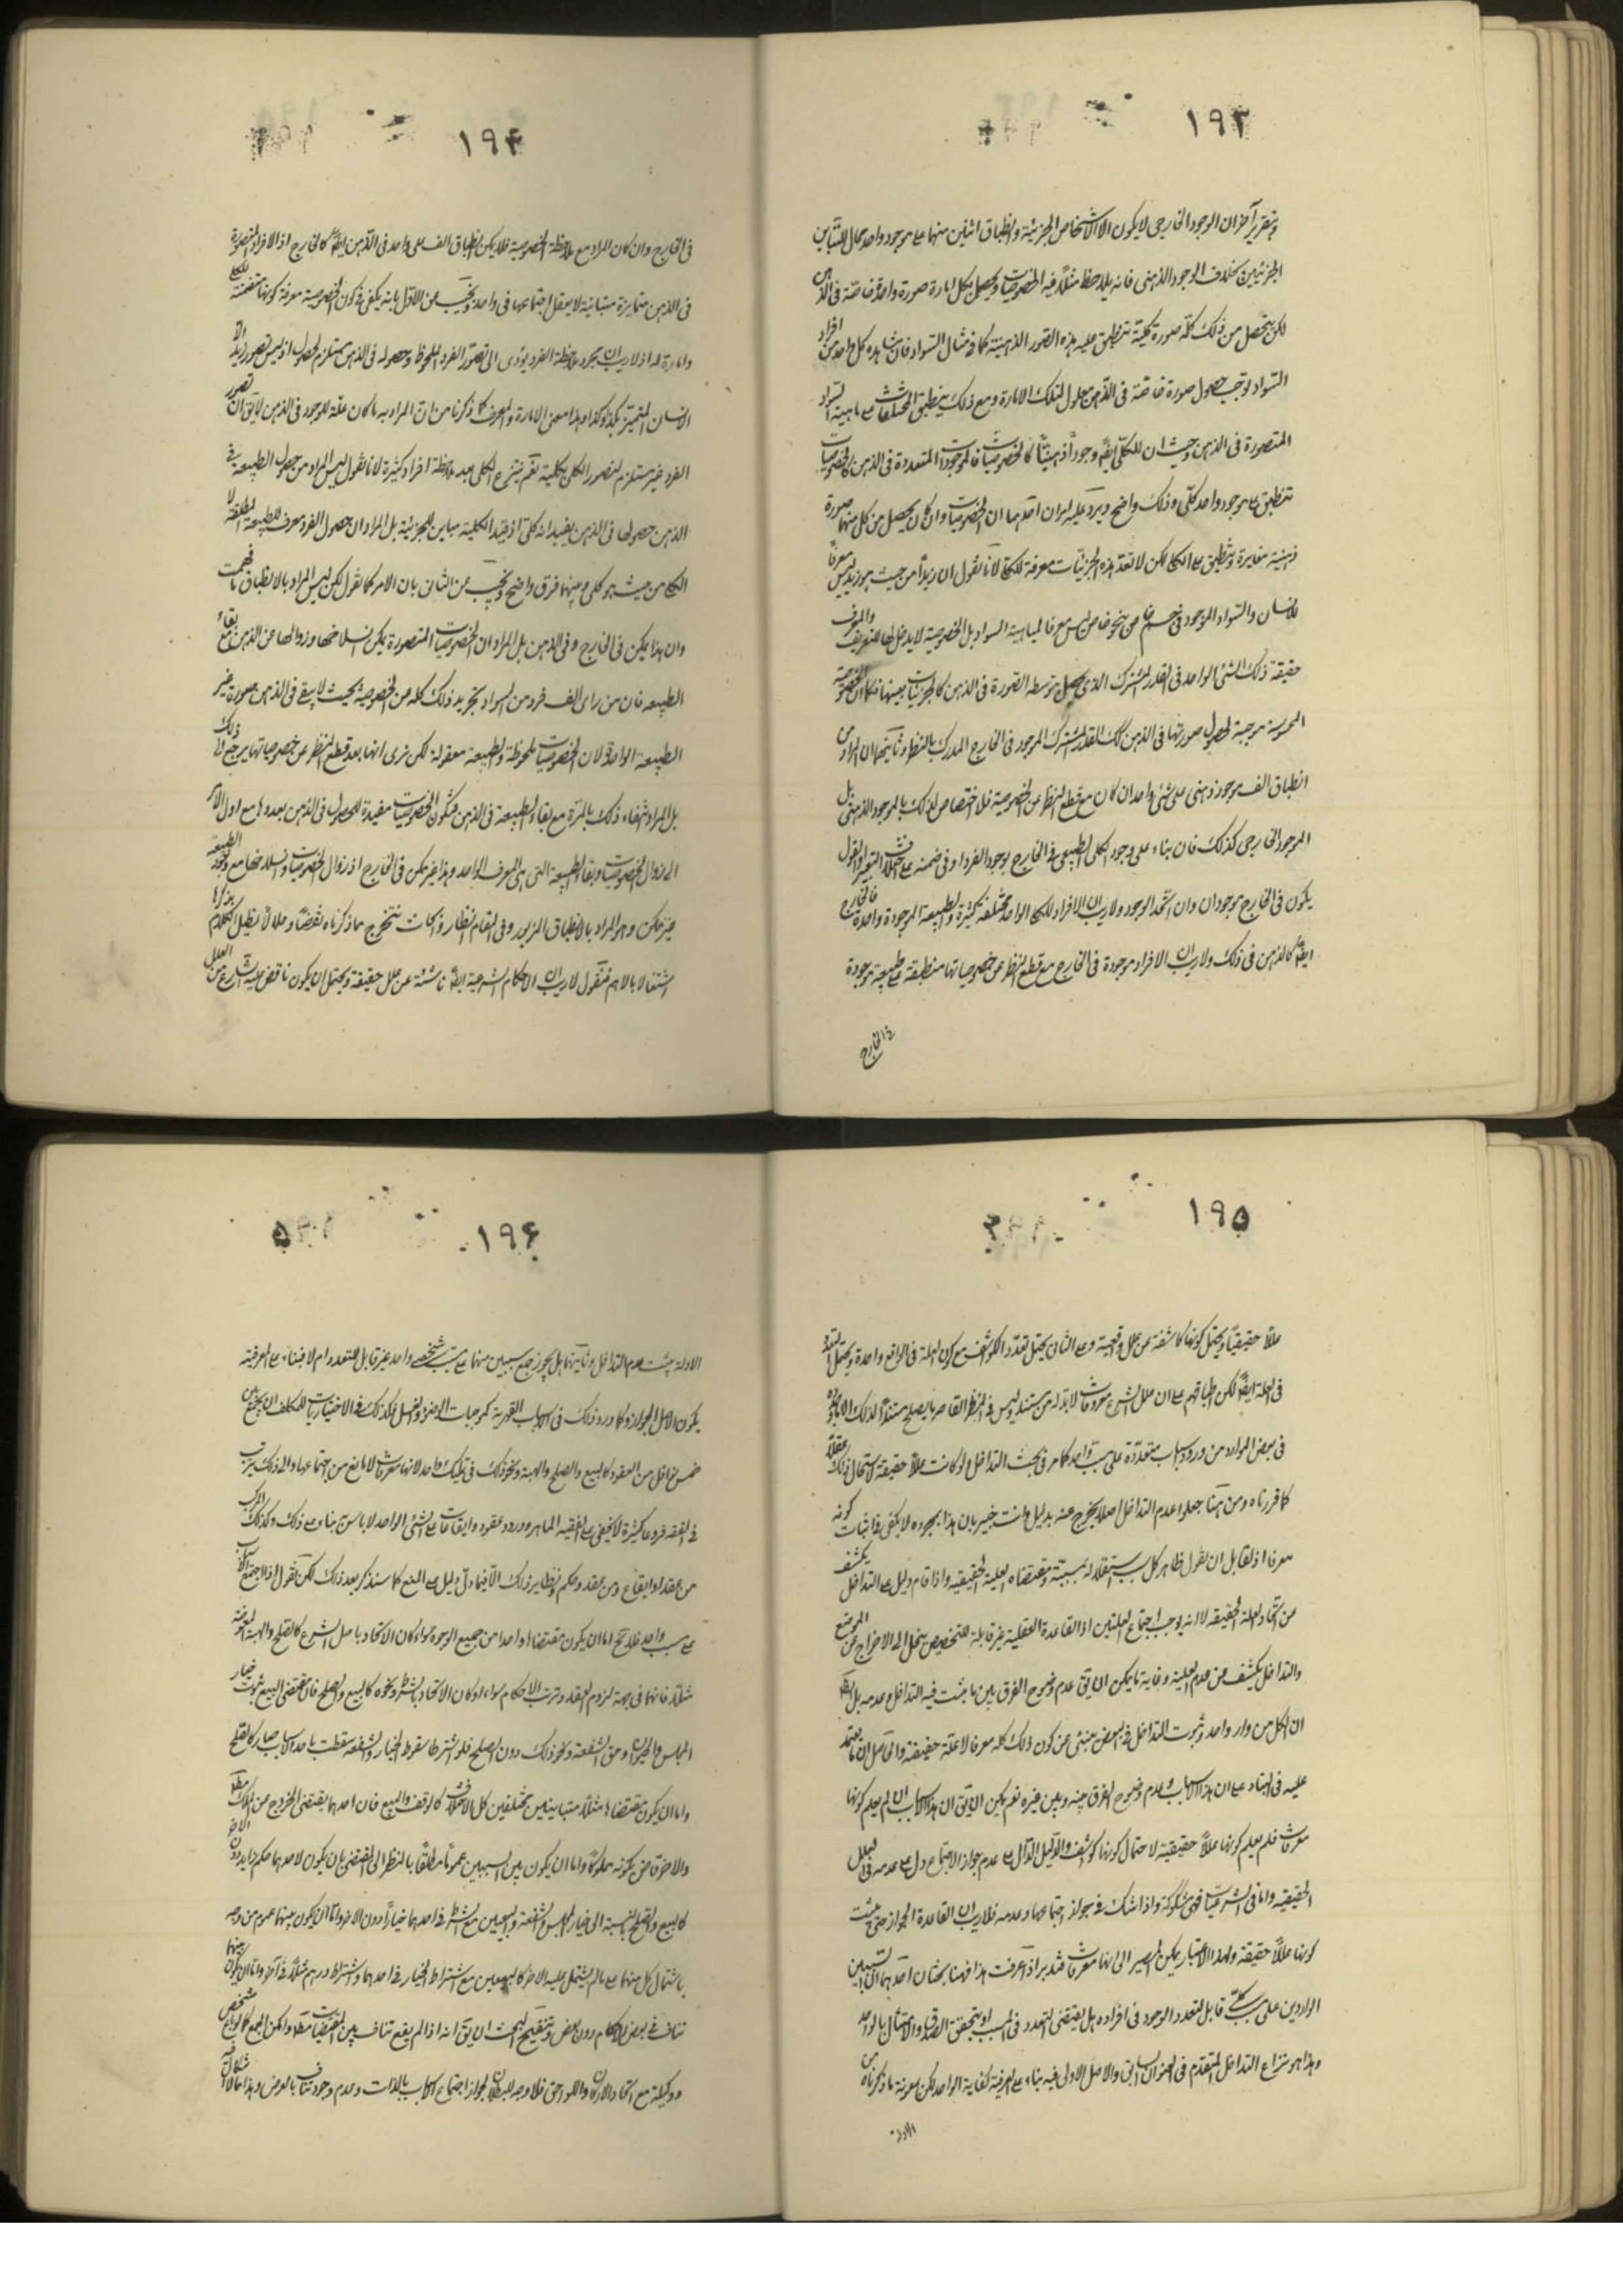 ١٩٣
وبتقرير آخر ان الوجود الخارجى لا يكون الا الاشخاص الجزئية وانطباق اثنين منها على موجود واحد محال للتباين
الجزئيين بخلاف الوجود الذهنى فانه يلاحظ مثلاً فيه الخصوصيات ويحصل بكل امارة صورة واحدة خاصة فى الذهن
لكن يتحصل من ذلك كلّه صورة كلية تنطبق عليه هذه الصور الذهنية كما فى مثال السواد فان مشاهدة كل واحد من افراد
السواد توجب حصول صورة خاصة فى الذهن معلول لتلك الامارة ومع ذلك ينطبق المختلفات على ماهية السواد
المتصورة فى الذهن وحيث ان للكلى ايضاً وجوداً ذهنيّاً كالخصوصيات فالموجودات المتعددة فى الذهن كالخصوصيات
تنطبق على موجود واحد كلّى وذلك واضح ويرد عليه ايران احدهما ان الخصوصيات وان كان يحصل من كل منهما صورة
ذهنية مغايرة وتنطبق على الكلى لكن لا تعد هذه الجزئيات معرفة للكلى لانا نقول ان زيداً من حيث هو زيد ليس معرفاً
للانسان والسواد الموجود فى جسم على نحو خاص ليس معرفا لماهية السواد بل الخصوصية لا يدخل لها للتعريف والمعرف
حقيقة ذلك الشئ الواحد فى القدر المشترك الذى يحصل بتوسطه الصورة فى الذهن كالجزئيات بعينها فكما ان الخصوصية
المحسوسة موجبة لحصول صورتها فى الذهن كك القدر المشترك الموجود فى الخارج المدرك بالنظر وثانيهما ان المراد من
انطباق الف موجود ذهنى على شئ واحد ان كان مع قطع النظر عن الخصوصية فلا اختصاص لذلك بالموجود الذهنى بل
الموجود الخارجى كذلك فان بناء على وجود الكلى الطبيعى فى الخارج بوجود الفرد او فى ضمنه على اختلاف التعبير والقول
يكون فى الخارج موجودان وان اتحد الوجود ولا ريب ان الافراد للكلى الواحد مختلفة كثيرة والطبيعة الموجودة واحدة فالخارج
ايضاً كالذهن فى ذلك ولا ريب ان الافراد موجودة فى الخارج مع قطع النظر عن خصوصياتها منطبقة على طبيعة موجودة
فى الخارج
١٩٤
فى الخارج وان كان المراد مع ملاحظة الخصوصية فلا يمكن انطباق الف على واحد فى الذهن ايضاً كالخارج اذ الافراد المتصورة
فى الذهن متمايزة متباينة لا يعقل اجتماعها فى واحد ونجيب عن الاول بانه يكفى فى كون الخصوصية معرفة كونها متضمنة للكلى
وامارة له اذ لا ريب ان مجرد ملاحظة الفرد يؤدى الى تصور الفرد الملحوظ وحصوله فى الذهن مستلزم لحصول اذ ليس تصور زيد الا
الانسان المتميز بكذا وكذا وهذا معنى الامارة والمعرف كما ذكرنا من ان المراد به ما كان علّة للوجود فى الذهن لا يق ان تصور
الفرد غير مستلزم لتصور الكلى بكلية نعم ينتزع الكلى بعد ملاحظة افراد كثيرة لانا نقول ليس المراد من حصول الطبيعة فى
الذهن حصولها فى الذهن بقيد انه كلى اذ قيد الكلية مباين للجزئية بل المراد ان حصول الفرد معرف للطبيعة المطلقة لا
الكلى من حيث هو كلى وبينهما فرق واضح ونجيب عن الثانى بان الامر كما نقول لكن ليس المراد بالانطباق ما فهمت
وان هذا يمكن فى الخارج وفى الذهن بل المراد ان الخصوصيات المتصورة يمكن انسلاخها وزوالها عن الذهن مع بقاء
الطبيعة فان من راى الف فرد من السواد يجرد ذلك كله من الخصوصية بحيث لا يبقى فى الذهن صورة غير
الطبيعة الواحدة لان الخصوصيات ملحوظة والطبيعة معقولة لكن نرى انها بعد قطع النظر عن خصوصياتها يرجع الى ذلك
بل المراد انتفاء ذلك بالمرّة مع بقاء الطبيعة فى الذهن فتكون الخصوصيات مفيدة للحصول فى الذهن بعددها مع اول الامر
الى زوال الخصوصيات وبقاء الطبيعة التى هى المعرف الواحد وهذا غير ممكن فى الخارج اذ زوال الخصوصيات وانسلاخها مع وجود الطبيعة
غير ممكن وهو المراد بالانطباق المزبور وفى المقام انظار وابحاث تتخرج مما ذكرناه نقضاً وحلا لا نطيل الكلام بذكرها
اشتغالا بالاهم فنقول لا ريب ان الاحكام الشرعية ايضاً ناشئة عن علل حقيقة ويحتمل ان يكون ناقض عليه الشارع من العلل
١٩٥
عللا حقيقياً ويحتمل كونها كاشفة عن علل واقعية وعلى الثانى يحتمل تعدد الكواشف مع كون العلة فى الواقع واحدة ويحتمل التعدد
فى العلة ايضاً لكن اطباقهم على ان علل الشرع معرفات لا بد له من مستند وليس فى النظر القاصر ما يصلح مستنداً لذلك الا ما نجده
فى بعض الموارد من ورود اسباب متعددة على مسبب واحد كما مر فى بحث التداخل لو كانت عللاً حقيقة لاستحال ذلك عقلاً
كما قررناه ومن هنا جعلوا عدم التداخل اصلا يخرج عنه بدليل وانت خبير بان هذا بمجرده لا يكفى فى اثبات كونه
معرفا اذ لقائل ان يقول ظاهر كل سبب استقلاله بسببيته ومقتضاه العلية الحقيقية واذا قام دليل على التداخل يكشف
عن اتحاد العلة الحقيقة لا انه يوجب اجتماع العلتين اذ القاعدة العقلية غير قابلة للتخصيص ينحل الى الاخراج عن الموضوع
والتداخل يكشف عن عدم العلية وغاية ما يمكن ان يق عدم وضوح الفرق بين ما يثبت فيه التداخل وعدمه بل الظ
ان الكل من وار واحد وثبوت التداخل فى البعض ينبئ عن كون ذلك كله معرفا لا علة حقيقة والحاصل ان ما يعتمد
عليه فى البناء على ان هذا الاسباب وعدم وضوح الفرق بينه وبين غيره نعم يمكن ان يق ان هذا الاسباب ان لم يعلم كونها
معرفات فلم يعلم كونها عللاً حقيقية لاحتمال كونها كواشف والدليل الدال على عدم جواز الاجتماع دل على عدمه فى العلل
الحقيقية واما فى الشرعيات فهى مشكوكة واذا شك فى جواز اجتماعها وعدمه فلا ريب ان القاعدة الجواز حتى يثبت
كونها عللاً حقيقة وبهذا الاعتبار يمكن المصير الى انها معرفات فتدبر اذا عرفت هذا فهنا بحثان احدهما ان السببين
الواردين على مسبب كلى قابل لتعدد الوجود فى افراده هل يقتضى التعدد فى المسبب او يتحقق الصدق والامتثال بالواحد
وهذا هو نزاع التداخل المتقدم فى العنوان السابق والاصل الاولى فيه بناء على المعرفية كفاية الواحد لكن بمعونة ما ذكرناه من
الادلة
١٩٦
الادلة يثبت عدم التداخل وثانيهما هل يجوز جمع سببين منها على مسبب شخصى واحد غير قابل للتعدد ام لا فبناء على المعرفية
يكون الاصل الجواز وكما ورد ذلك فى الاسباب القهرية كموجبات الوضوء والغسل فكذلك فى الاختياريات للمكلف ان يجمع بين
خمس نواقل من العقود كالبيع والصلح والهبة ونحو ذلك فى تمليك واحد لانها معرفات لا مانع من اجتماعها والى ذلك يترتب
فى الفقه فروعا كثيرة لا يخفى على الفقيه الماهر وورود عقود وايقاعات على الشئ الواحد لا باس به بناء على ذلك وكذلك المركب
من عقد او ايقاع ومن عقد وحكم ونظاير ذلك الا فيما دل دليل على المنع كما سنذكر بعد ذلك لكن نقول اذا اجتمع الاسباب
على مسبب واحد فلا يخ اما ان يكون مقتضاها واحدا من جميع الوجوه سواء كان الاتحاد باصل الشرع كالصلح والهبة المعوضة
مثلا فانهما فى جهة لزوم العقد وترتب الاحكام سواء او كان الاتحاد بالشرط ونحوه كالبيع والصلح فان مقتضى البيع ثبوت خيار
المجلس والحيوان وحق الشفعة ونحو ذلك دون الصلح فلو اشترط سقوط الخيار والشفعة سقطت باحد الاسباب صار كالصلح
واما ان يكون مقتضاها مثلا متباينين مختلفين كل الاختلاف كالوقف والبيع فان احدهما يقتضى الخروج عن الملك مطلقا
والاخر قاض بكونه مملوكا واما ان يكون بين السببين عموماً مطلقاً بالنظر الى المقتضى بان يكون لاحدهما حكم زايد دون الاخر
كالبيع والصلح بالنسبة الى خيار المجلس والشفعة والبيعين مع الشرط فى احدهما خياراً دون الاخر واما ان يكون بينهما عموم من وجه
باشتمال كل منهما على ما لم يشتمل عليه الاخر كالبيعين مع اشتراط الخيار فى احدهما واشتراط درهم مثلا فى آخر واما ان يكون بينهما
تناف فى بعض الاحكام دون بعض وتنقيح البحث ان يق انه اذا لم يقع تناف بين المقتضيات مط وامكن الجمع كما لو باع شخص
ووكيله مع اتحاد الاركان واللواحق فلا وجه للبطلان لجواز اجتماع الاسباب بالذات وعدم وجود تناف بالعرض وهذا مما لا اشكال فيه